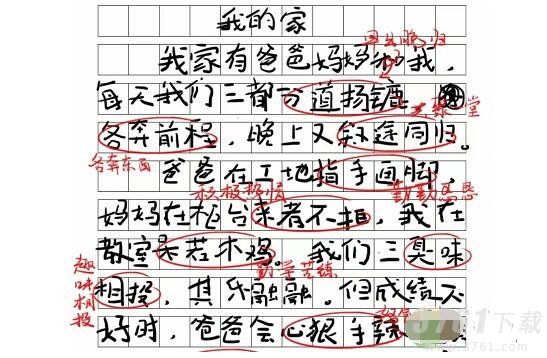 我的家
早出晚归
我家有爸爸妈妈和我,
每天我们三都分道扬镳
各奔前程,晚上又殊途同归。
各奔东西
爸爸在工地指手画脚,
积极热情
勤勤恳恳
妈妈在柜台来者不拒,我在
教室呆若木鸡。我们三臭味
勤学苦练
趣味相投
相投,其乐融融。但成绩不
好时,爸爸会心狠手辣
下载